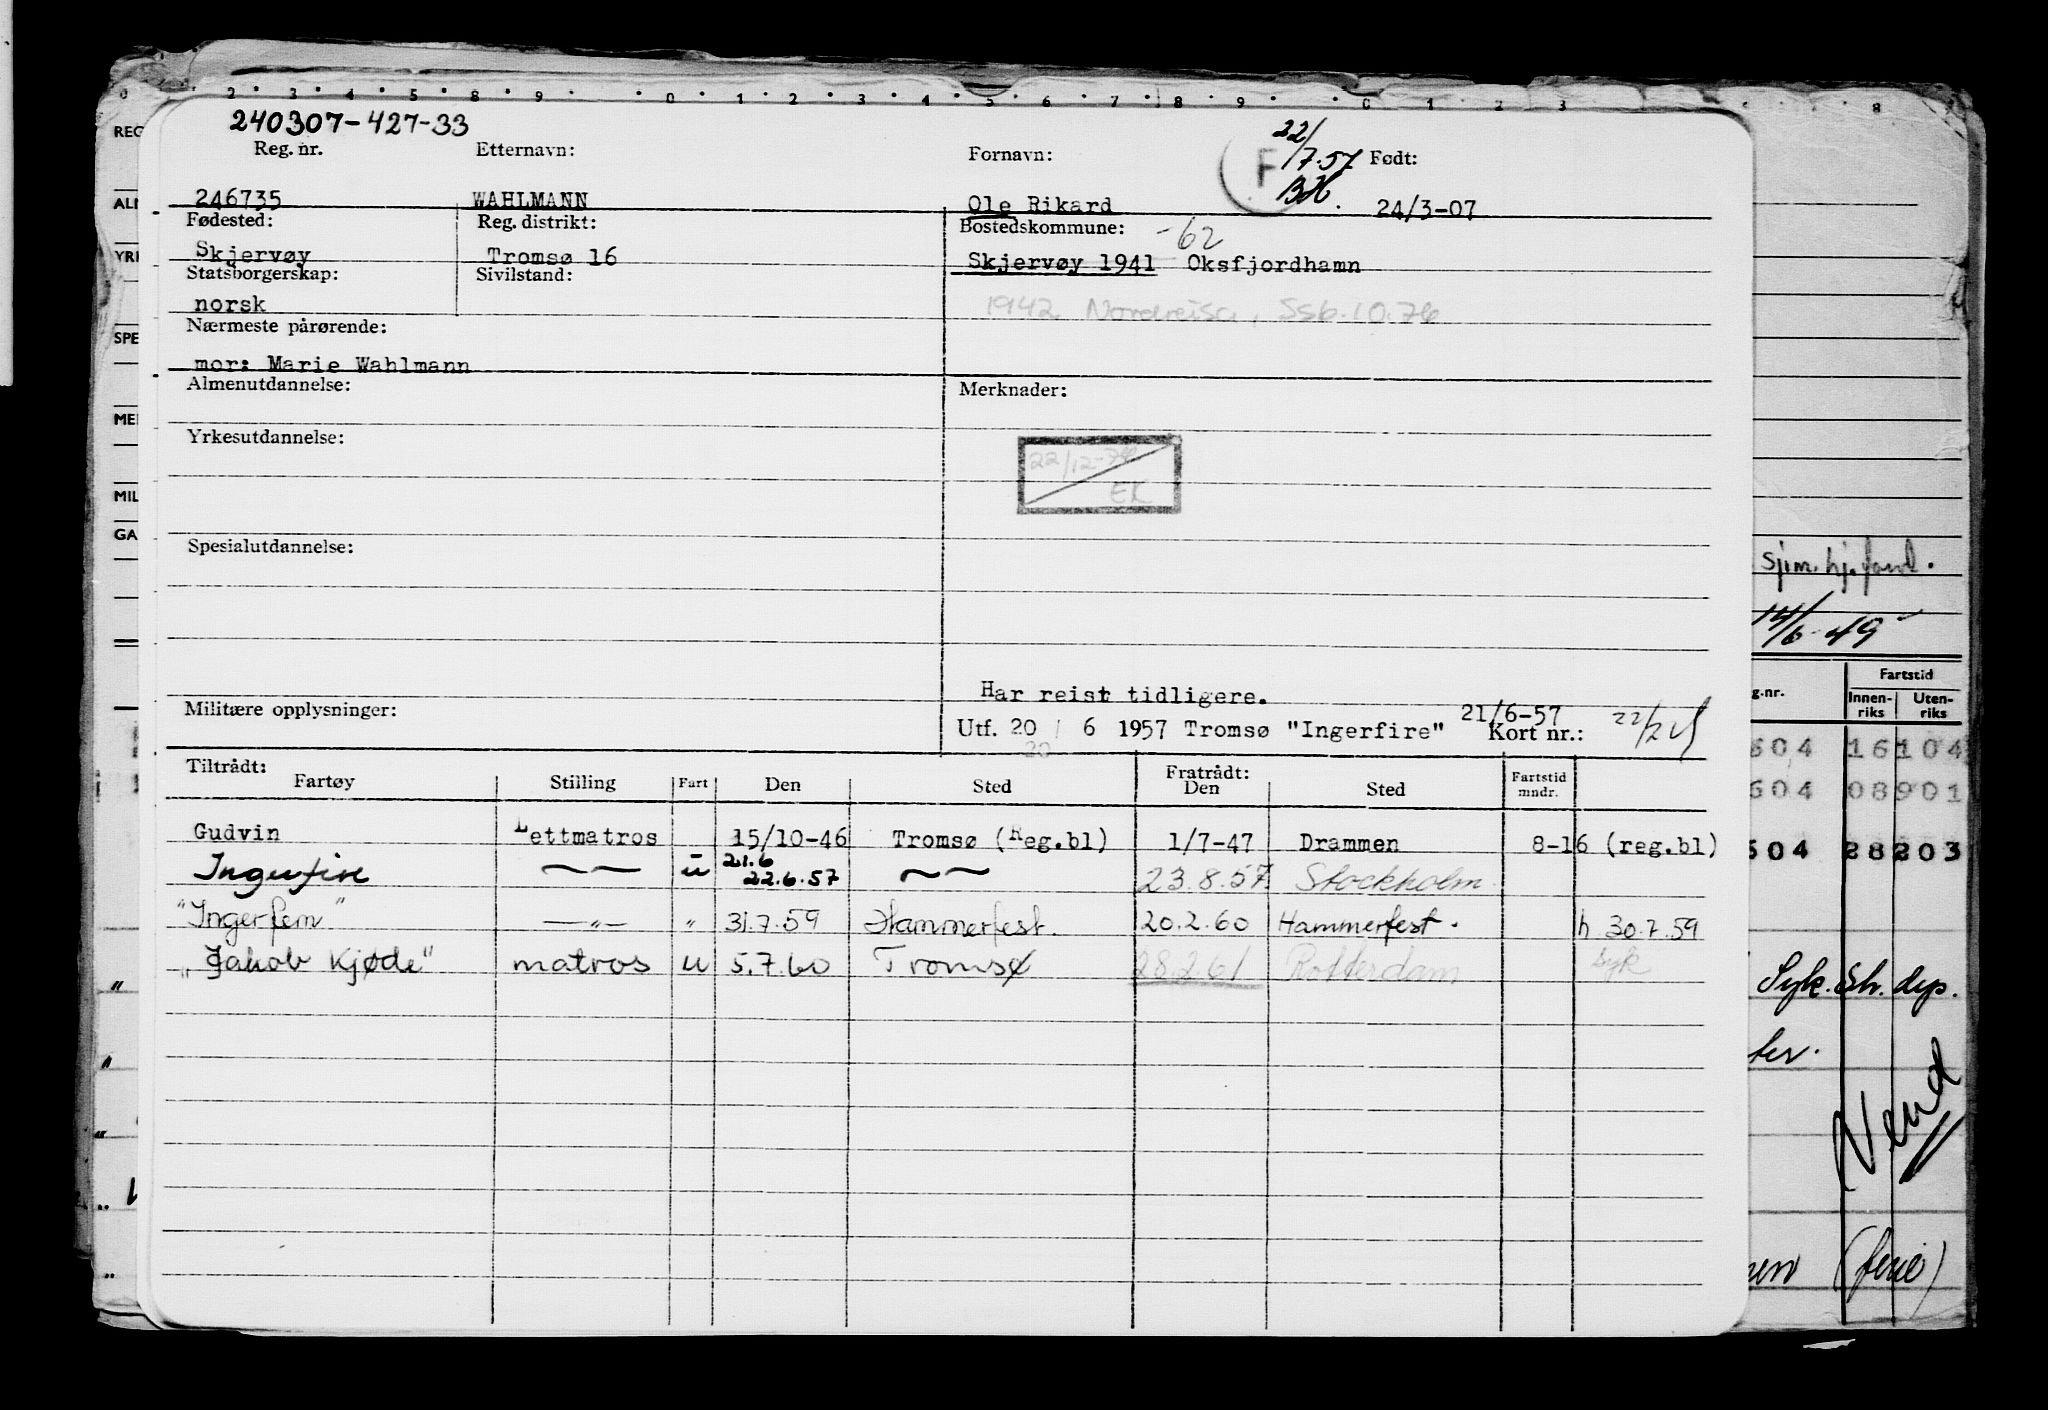 240307-427-33
Reg. nr. Etternavn: Fornavn: F 22/7.57 BH. Født:
246735 WAHLMANN Ole Rikard 24/3-07
Fødested: Reg. distrikt: Bostedskommune: -62
Skjervøy Tromsø 16 Skjervøy 1941 Oksfjordhamn
Statsborgerskap: Sivilstand:
norsk 1942 Nordreisa, Ssb.10.76
Nærmeste pårørende:
mor: Marie Wahlmann
Almenutdannelse: Merknader:
Yrkesutdannelse:
22/12-76
EK
Spesialutdannelse:
Har reist tidligere.
Militære opplysninger: Utf. 20 / 6 1957 Tromsø "Ingerfire" 21/6-57 Kort nr.:
20
Tiltrådt: Fratrådt:
Fartøy Stilling Fart Den Sted Den Sted Fartstid mndr.
Gudvin Lettmatros 15/10-46 Tromsø (Reg.bl) 1/7-47 Drammen 8-16 (reg.bl)
Ingerfire u 21.6 22.6.57 23.8.57 Stockholm
"Ingerfem" —"— " 31.7.59 Hammerfest. 20.2.60 Hammerfest. h 30.7.59
"Jakob Kjøde" matros u 5.7.60 Tromsø 28.2.61 Rotterdam syk
REG
ALM
YRK
SPE
MER
MIL
GA
sjm. hj. fond.
14/6-49
g.nr. Fartstid
Innen-riks Uten-riks
604 16 104
604 08 901
604 28 203
Syk. Sh. dep.
ter.
Vend
(ferie)